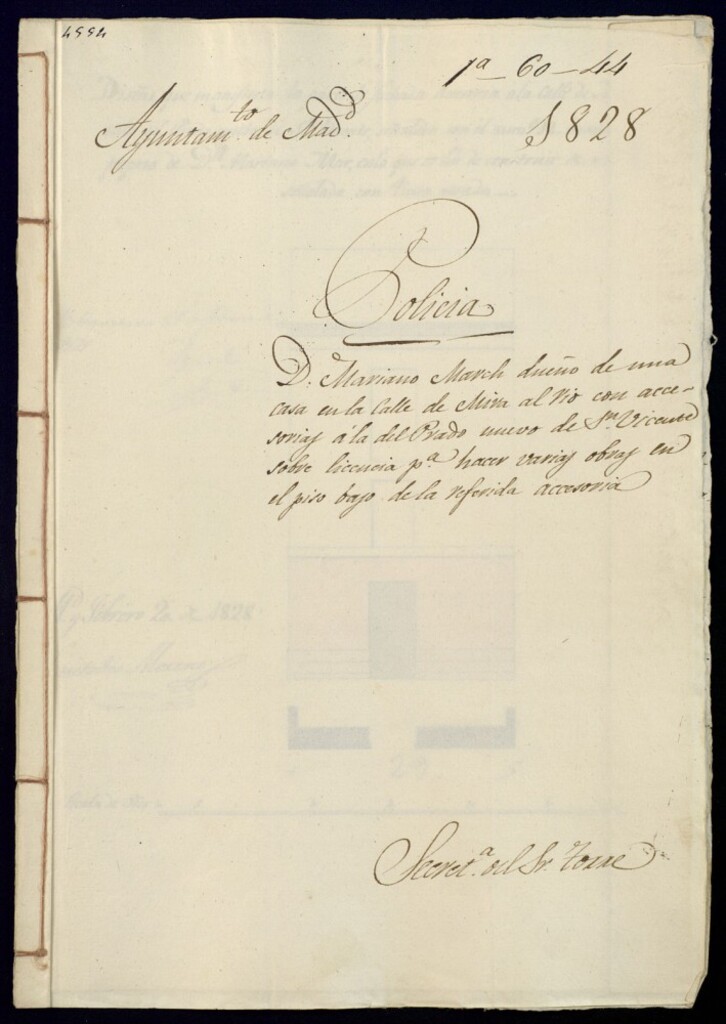 4554
1ª - 60 - 44
Ayuntam.to de Mad.d
1828
Policia
D.n Mariano March dueño de una
casa en la Calle de Mira al Rio con acce-
sorias á la del Prado nuevo de S.n Vicente
sobre licencia p.a hacer varias obras en
el piso bajo de la referida accesoria
Febrero 20 de 1828
Secret.a del Sr. Torre